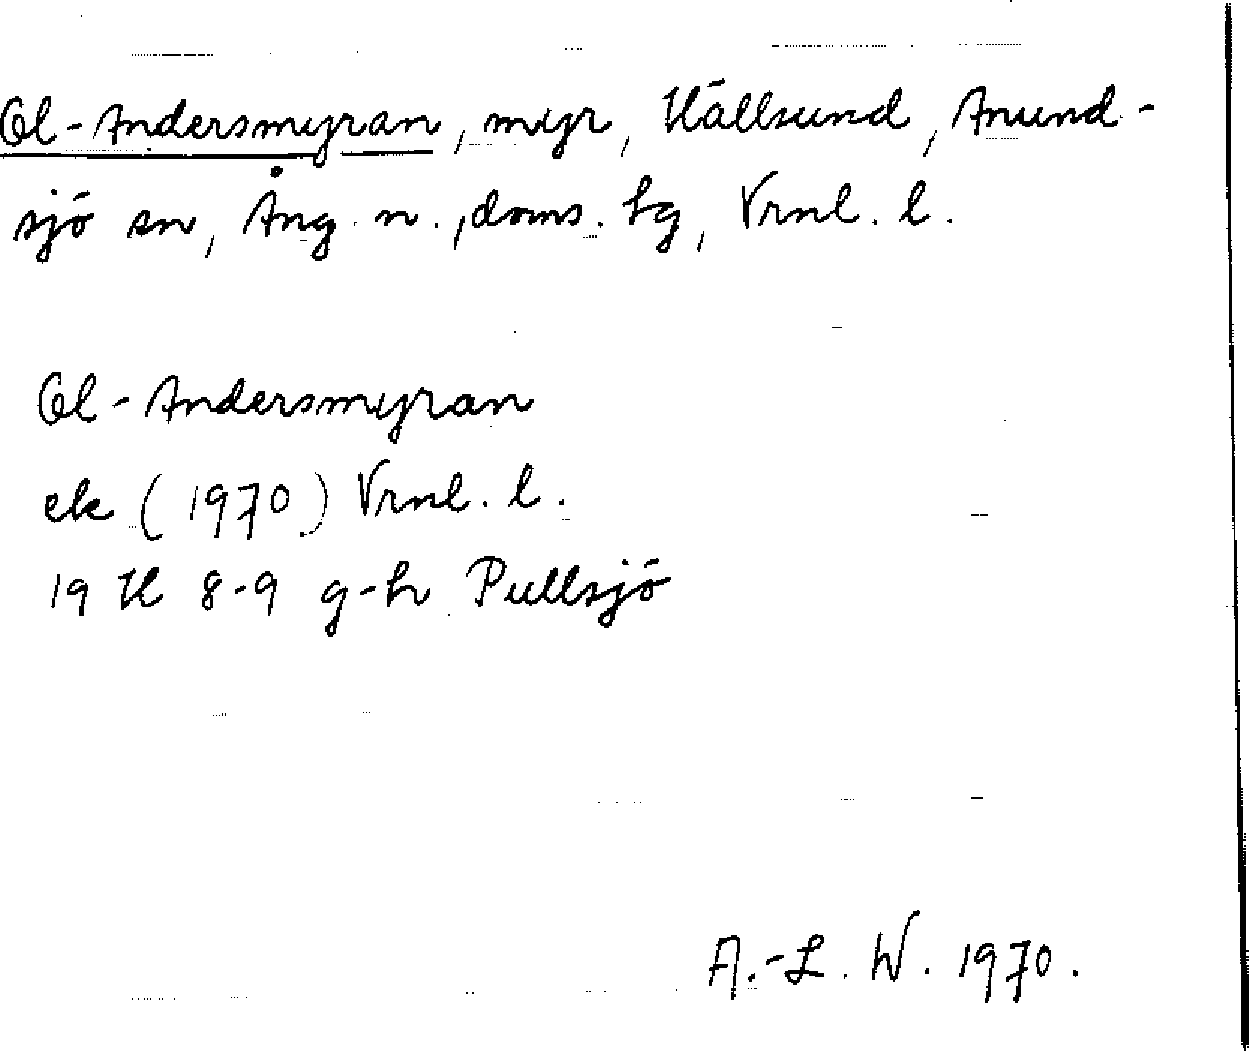 Ol-Andersmyran, myr, Hällsund, Anund-
sjö sn, Ång. n., doms. hg, Vrnl. l.
Ol-Andersmyran
ek (1970) Vrnl. l.
19 H 8-9 g-h Pullsjö
A.-L. W. 1970.